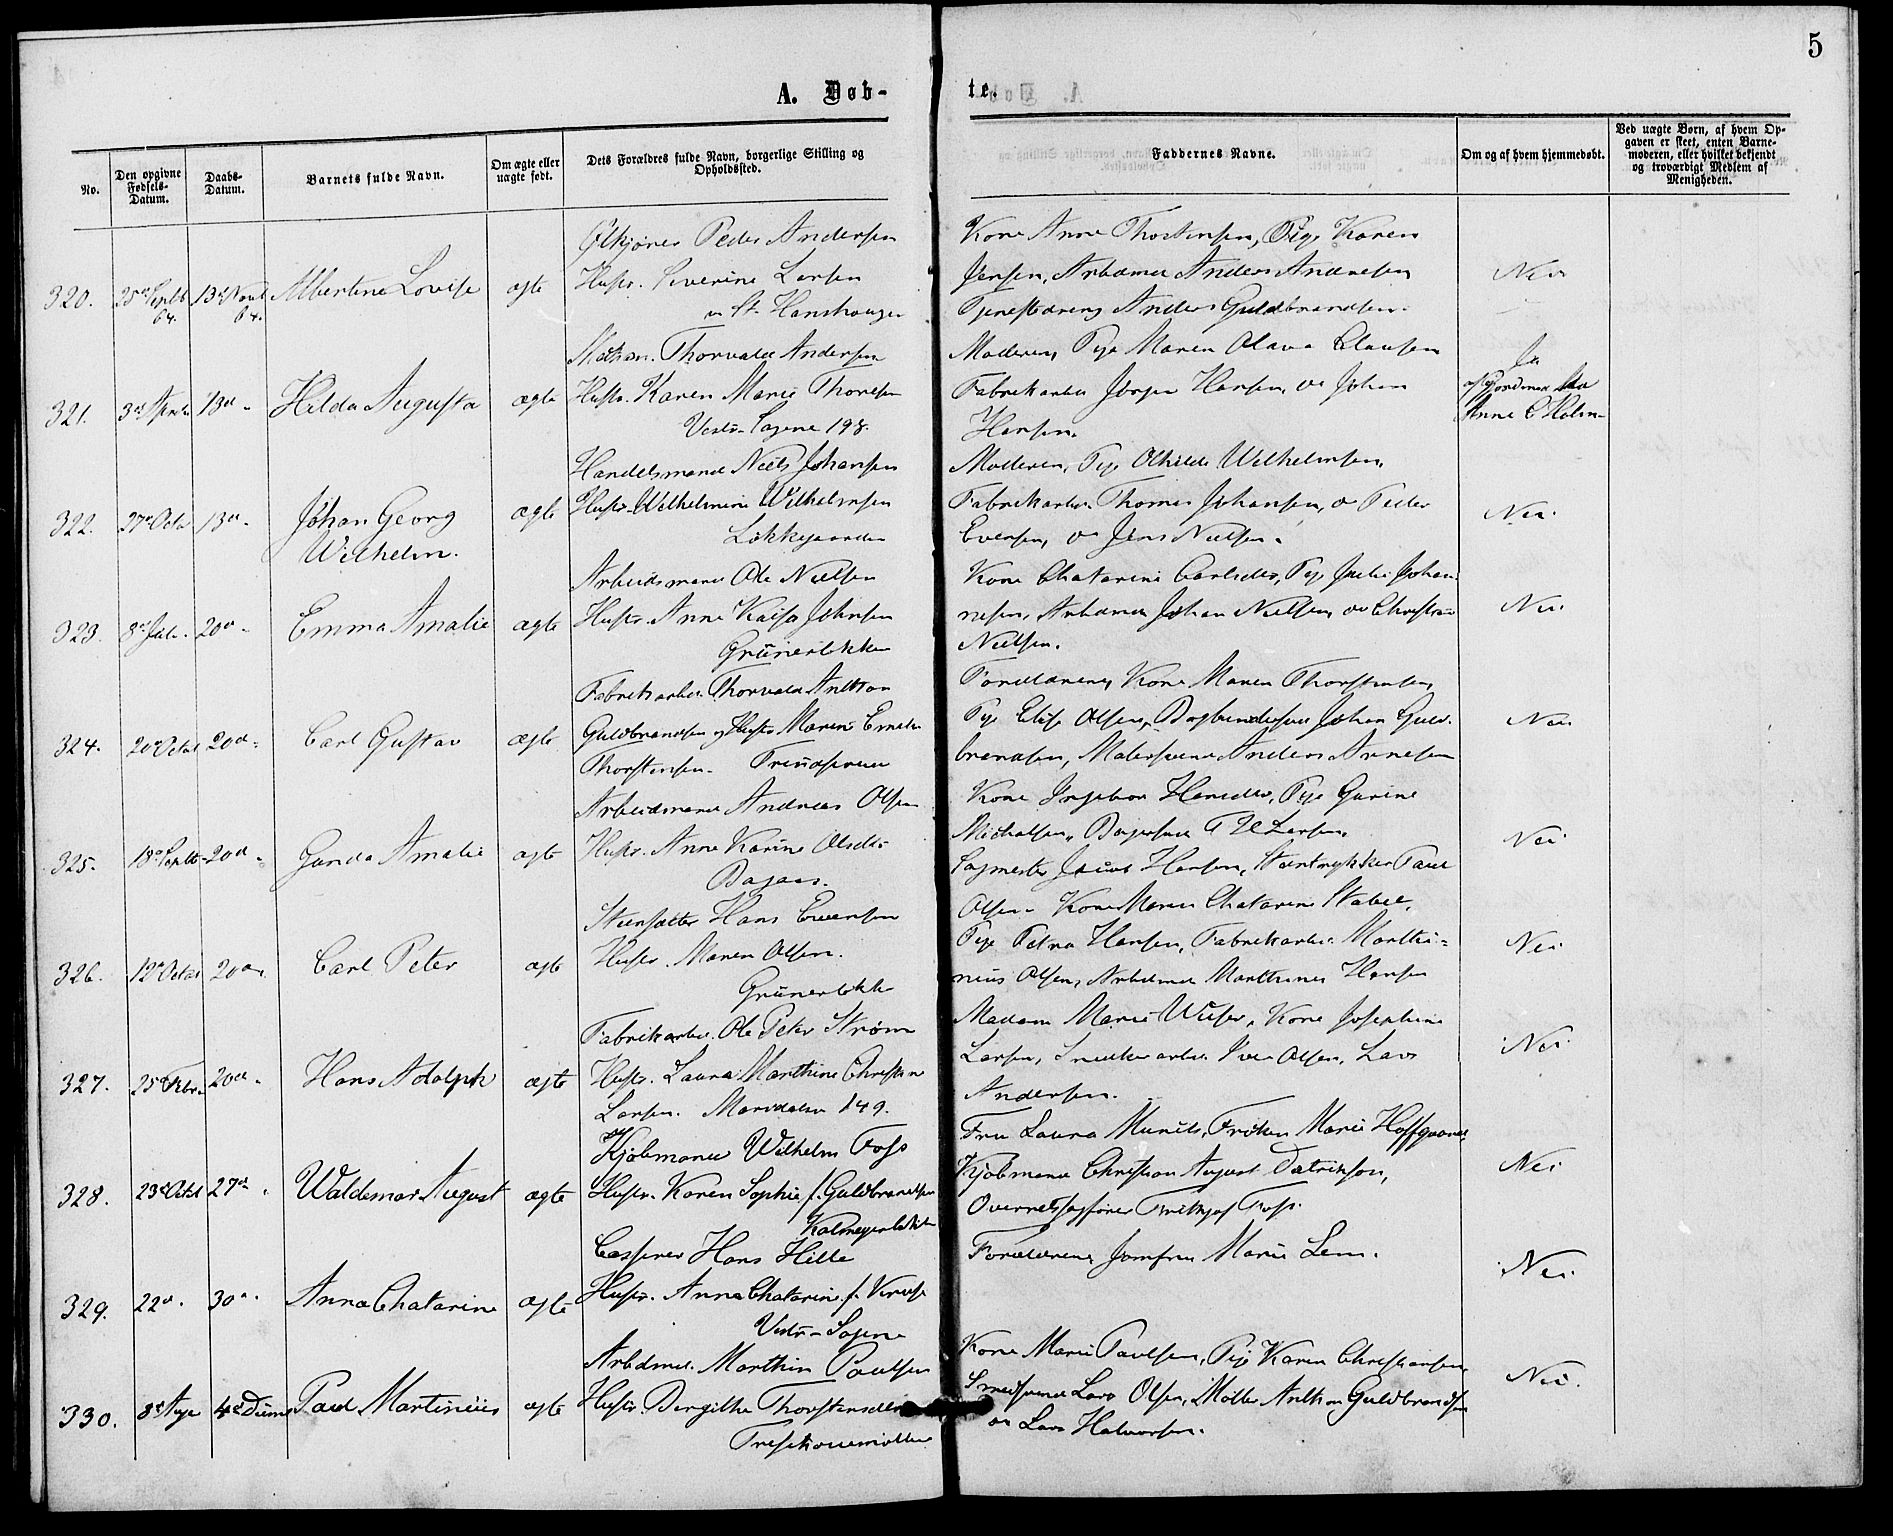 5
A. Døb-
te.
No.
Den opgivne Fødsels-Datum.
Daabs-Datum.
Barnets fulde Navn.
Om ægte eller uægte født.
Dets Forældres fulde Navn, borgerlige Stilling og Opholdssted.
Faddernes Navne.
Om og af hvem hjemmedøbt.
Ved uægte Børn, af hvem Opgaven er skeet, enten Barnemoderen, eller hvilket bekjendt og troværdigt Medlem af Menigheden.
320. Albertine Lovise ægte
Peder Andersen
Hustr. Severine Larsen
St. Hanshaugen
Kone Anne Thorstensen, Pige Karen
Jensen, Arbdmd Anders Andresen
Anders Guldbrandsen.
Nei
321. 13de Hilda Augusta ægte
Thorvald Andersen
Hustr. Karen Marie Thoresen
Vestr. Sagene 198.
Moderen, Pige Maren Olava Clausen
Fabrikarbr Jørgen Hansen, og Johan
Hansen.
Ja
af Jordmor
Anne C Holm
322. 27de Octo 13de Johan Georg
Wilhelm. ægte
Handelsmand Niels Johansen
Hustr. Wilhelmine Wilhelmsen
Løkkegaarden
Moderen, Pige Wilhelmsen,
Fabrikarbr. Thomas Johansen, og Peder
Evensen, og Jens Nielsen.
Nei
323. 20de Emma Amalie ægte
Arbeidsmand Ole Nielsen
Hustr. Anne Kaisa Johnsen
Grünerløkken
Kone Chatarine Carlsdtr, Pige Julie Johan
nesen, Arbdmd Johan Nielsen og Christian
Nielsen.
Nei
324. 20de Octbr 20de Carl Gustav ægte
Fabrikarbr. Thorvald Anthon
Guldbrandsen og Hustr Maren Emilie
Thorstensen.
Forældrene, Kone Maren Thorstensen,
Pige Elise Olsen, Bogbindersvend Johan Guld-
brandsen, Malersvend Anders Arnesen
Nei
325. 18de Septbr 20de Gunda Amalie ægte
Arbeidsmand Andreas Olsen
Hustr. Anne Karine Olsdtr
Bagaas.
Kone Ingebor Hansdtr, Pige Gurine
Michalsen, Bagersvend Larsen,
Sagmester Hansen, Steentrykker Paul
Olsen
Nei
326. 12te Octbr 20de Carl Peter ægte
Steensætter Hans Evensen
Hustr. Maren Olsen.
Grünerløkken
Kone Maren Chatarine Stabel,
Pige Petra Hansen, Fabrikarbr. Marthi-
nius Olsen, Arbdmd Marthinus Hansen
Nei
327. 25de Febr. 20de Hans Adolph ægte
Fabrikarbr. Ole Peter Strøm
Hustr. Laura Marthine Christine
Larsen. Maridalsv 149.
Madam Marie Kone Josephine
Larsen, Snedkerarbr Iver Olsen, Lars
Andersen.
Nei.
328. 23de Octbr 27de Waldemar August ægte
Kjøbmand Wilhelm Foss
Hustr. Karen Sophie f. Guldbrandsen
Kalmeyerløkken
Fru Laura Frøken Marie Hoffgaard
Kjøbmand Christian August
Overretssagfører Frithjof Foss.
Nei
329. 22de 30de Anna Chatarine ægte
Casserer Hans Hille
Hustr. Anna Chatarine f.
Vestr. Sagene
Forældrene, Jomfru Marie Lem.
Nei.
330. 8de Aug 4de Paul Martinius ægte
Arbdmd. Marthin Paulsen
Hustr. Bergithe Thorstensdtr
Kone Marie Paulsen, Pige Karen Christiansen,
Smedsvend Lars Olsen, Møller Anthon Guldbrandsen
og Lars Halvorsen.
Nei.